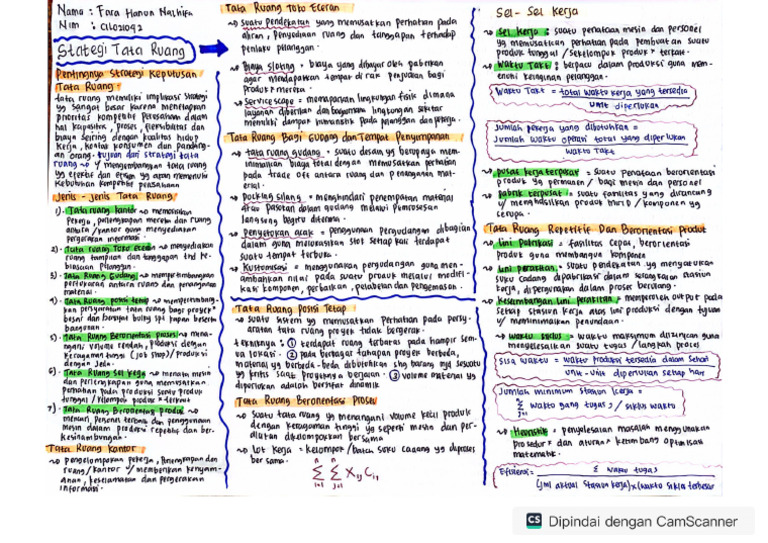 Nama : Fara Hanun Nazhifa
Nim : C1L021092
Strategi Tata Ruang
Pentingnya Strategi Keputusan
Tata Ruang :
tata ruang memiliki implikasi strategi
yg sangat besar karena menetapkan
prioritas kompetitif perusahaan dalam
hal kapasitas, proses, fleksibilitas dan
biaya seiring dengan kualitas hidup
kerja, kontak konsumen dan
orang. tujuan dari strategi tata
ruang
yg efektif dan efisien yg akan memenuhi
kebutuhan kompetitif perusahaan
Jenis - Jenis Tata Ruang
1). Tata ruang kantor
pekerja, perlengkapan mereka dan ruang
antara / kantor guna menyediakan
pergerakan informasi.
2). Tata ruang Toko Eceran
ruang tampilan dan tanggapan thd
Pelanggan.
3). Tata Ruang Gudang
pertukaran antara ruang dan penanganan
material.
4). Tata Ruang posisi tetap
kan penyusunan tata ruang bagi proyek
besar dan
bangunan.
5). Tata Ruang Berorientasi proses
volume rendah, produksi dengan
keragaman tinggi (job shop) / produksi
dengan jeda.
6). Tata Ruang sel kerja → menata mesin
dan perlengkapan guna memusatkan
perhatian pada produksi suatu produk
tunggal / kelompok produk terkait
7). Tata Ruang Berorientasi produk
mencari personel terbaik dan penggunaan
mesin dalam produksi repetitif dan ber-
kesinambungan.
Tata Ruang Kantor
→ pengelompokan pekerja, perlengkapan dan
ruang / kantor u/ memberikan kenyam-
anan, keselamatan dan pergerakan
informasi.
Tata Ruang Toko Eceran
→ suatu pendekatan yang memusatkan perhatian pada
aliran, penyediaan ruang dan tanggapan terhadap
perilaku pelanggan.
→ Biaya sloting = biaya yang dibayar oleh pabrikan
agar mendapatkan tempat di rak penjualan bagi
produk mereka.
→ Servicescape = memaparkan lingkungan fisik dimana
layanan diberikan dan bagaimana lingkungan sekitar
memiliki dampak humanistik pada pelanggan dan pekerja.
Tata Ruang Bagi Gudang dan Tempat Penyimpanan
→ tata ruang gudang = suatu desain yg berupaya mem-
inimalkan biaya total dengan memusatkan perhatian
pada trade off antara ruang dan penanganan mat-
erial.
→ Docking silang = menghindari penempatan material
atau pasokan dalam gudang melalui pemrosesan
langsung begitu diterima.
→ Penyetokan acak = penggunaan pergudangan dibagian
dalam guna melokasikan stok setiap kali terdapat
suatu tempat terbuka.
→ Kustomisasi = menggunakan pergudangan guna men-
ambahkan nilai pada suatu produk melalui modifi-
kasi komponen, perbaikan, pelabelan dan pengemasan.
Tata Ruang Posisi Tetap
→ suatu sistem yg memusatkan perhatian pada persy-
aratan tata ruang proyek tidak bergerak.
tekniknya : ① terdapat ruang terbatas pada hampir sem-
ua lokasi. ② pada berbagai tahapan proyek berbeda,
material yg berbeda-beda dibutuhkan shg barang
yg kritis saat proyeknya berjalan. ③ volume material yg
diperlukan adalah bersifat dinamik
Tata Ruang Berorientasi Proses
→ suatu tata ruang yg menangani volume kecil produk
dengan keragaman tinggi yg seperti mesin dan per-
alatan dikelompokkan bersama
→ Lot kerja = kelompok / batch suku cadang yg diproses
bersama.
n n
Σ Σ Xij Cij
i=1 j=1
Sel - Sel Kerja
→ Sel kerja : suatu penataan mesin dan personel
yg memusatkan perhatian pada pembuatan suatu
produk tunggal / sekelompok produk terkait.
→ Waktu Takt : berpacu dalam produksi guna mem-
enuhi keinginan pelanggan.
Waktu Takt = total waktu kerja yang tersedia
unit diperlukan
Jumlah pekerja yang dibutuhkan =
Jumlah waktu operasi total yang diperlukan
waktu Takt
→ pusat kerja terpusat : suatu penataan berorientasi
produk yg permanen / bagi mesin dan personel
→ pabrik terpusat : suatu fasilitas yang dirancang
u/ menghasilkan produk mirip / komponen yg
serupa.
Tata Ruang Repetitif Dan Berorientasi produk
→ lini pabrikasi = fasilitas cepat, berorientasi
produk guna membangun komponen
→ lini perakitan : suatu pendekatan yg menyatukan
suku cadang dipabrikasi dalam serangkaian stasiun
kerja, dipergunakan dalam proses berulang.
→ Keseimbangan lini perakitan = memperoleh output pada
setiap stasiun kerja atas lini produksi dengan tujuan
u/ meminimalkan penundaan.
→ waktu siklus = waktu maksimum diizinkan guna
menyelesaikan suatu tugas / langkah proses
Sisa waktu = waktu produksi tersedia dalam sehari
unit-unit diperlukan setiap hari
Jumlah minimum stasiun kerja =
Σ waktu yang tugas / siklus waktu
i=1
→ Heuristik = penyelesaian masalah menggunakan
prosedur dan aturan ketimbang optimisasi
matematik.
Efisiensi = Σ waktu tugas
(jml aktual stasiun kerja) x (waktu siklus terbesar
CS Dipindai dengan CamScanner